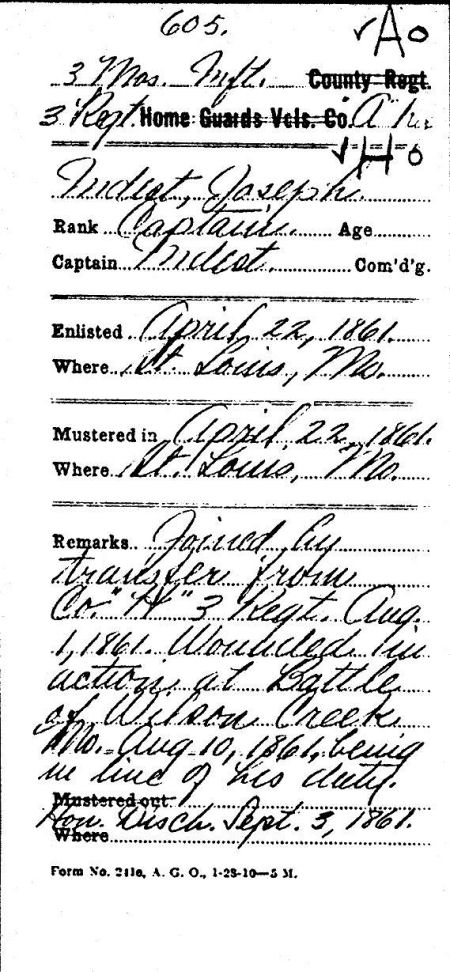 605.
✓A0
3 Mos. Inft. County Regt.
3 Regt. Home Guards Vols. Co. "A"
✓H0
Indest, Joseph
Rank Captain. Age
Captain Indest. Com'd'g.
Enlisted April 22, 1861.
Where St. Louis, Mo.
Mustered in April 22, 1861.
Where St. Louis, Mo.
Remarks Joined by
transfer from
Co. "H" 3 Regt. Aug.
1, 1861. Wounded in
action at Battle
of Wilson Creek
Mo. Aug 10, 1861, being
in line of his duty.
Mustered out
Hon. Disch. Sept. 3, 1861.
Where
Form No. 241c, A. G. O., 1-28-10—5 M.